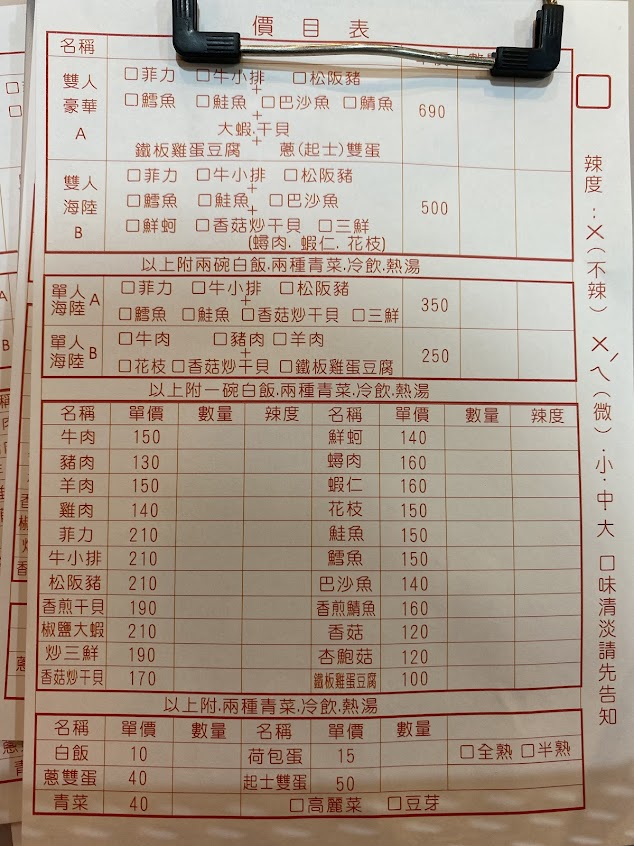 價目表
名稱 數量
雙人豪華A □菲力 □牛小排 □松阪豬
+
□鱈魚 □鮭魚 □巴沙魚 □鯖魚 690
+
大蝦.干貝
+
鐵板雞蛋豆腐 蔥(起士)雙蛋
雙人海陸B □菲力 □牛小排 □松阪豬
+
□鱈魚 □鮭魚 □巴沙魚 500
+
□鮮蚵 □香菇炒干貝 □三鮮
(蟳肉.蝦仁.花枝)
以上附兩碗白飯.兩種青菜.冷飲.熱湯
單人海陸A □菲力 □牛小排 □松阪豬
+ 350
□鱈魚 □鮭魚 □香菇炒干貝 □三鮮
單人海陸B □牛肉 □豬肉 □羊肉
+ 250
□花枝 □香菇炒干貝 □鐵板雞蛋豆腐
以上附一碗白飯.兩種青菜.冷飲.熱湯
名稱 單價 數量 辣度 名稱 單價 數量 辣度
牛肉 150 鮮蚵 140
豬肉 130 蟳肉 160
羊肉 150 蝦仁 160
雞肉 140 花枝 150
菲力 210 鮭魚 150
牛小排 210 鱈魚 150
松阪豬 210 巴沙魚 140
香煎干貝 190 香煎鯖魚 160
椒鹽大蝦 210 香菇 120
炒三鮮 190 杏鮑菇 120
香菇炒干貝 170 鐵板雞蛋豆腐 100
以上附.兩種青菜.冷飲.熱湯
名稱 單價 數量 名稱 單價 數量
白飯 10 荷包蛋 15 □全熟 □半熟
蔥雙蛋 40 起士雙蛋 50
青菜 40 □高麗菜 □豆芽
□辣度:ㄨ(不辣) ㄨㄟˊ(微).小.中.大 口味清淡請先告知